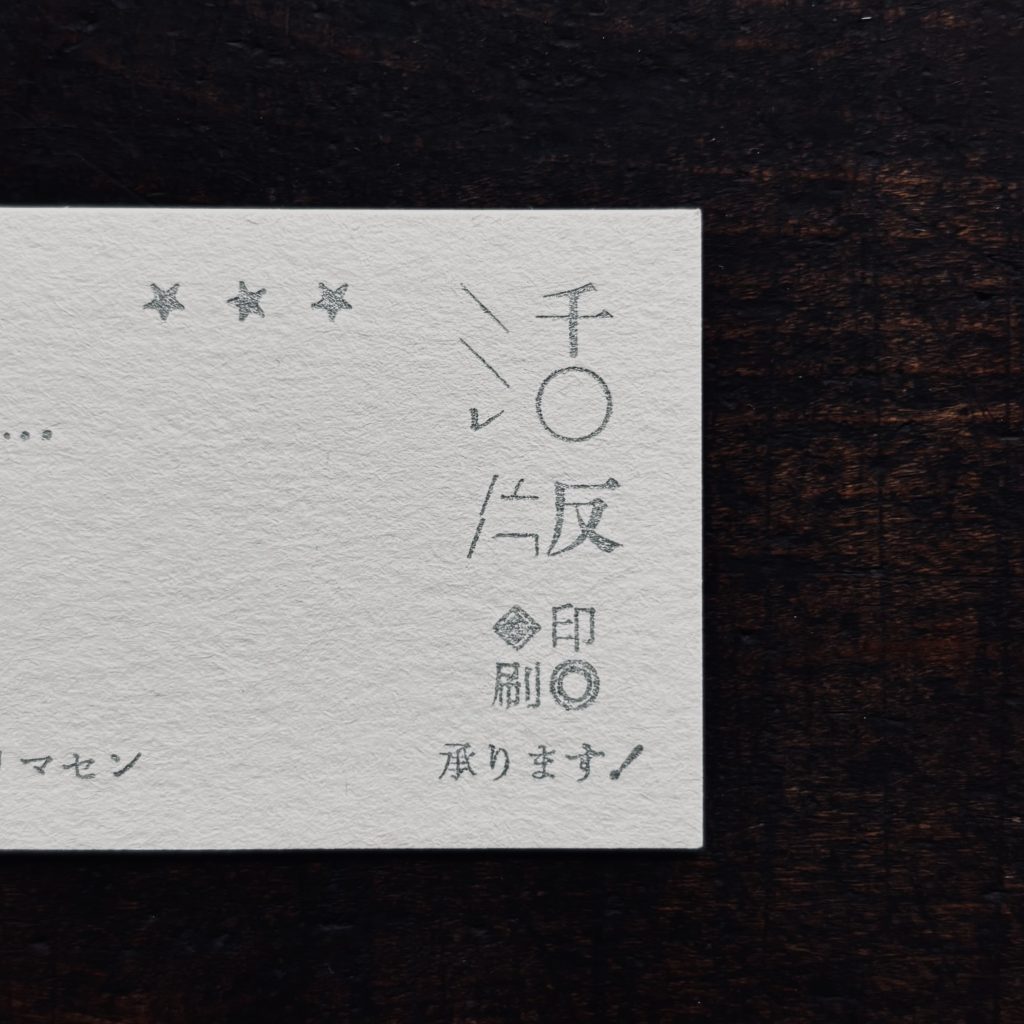 ★ ★ ★
...
リマセン
活
版
◈印
刷◎
承ります！